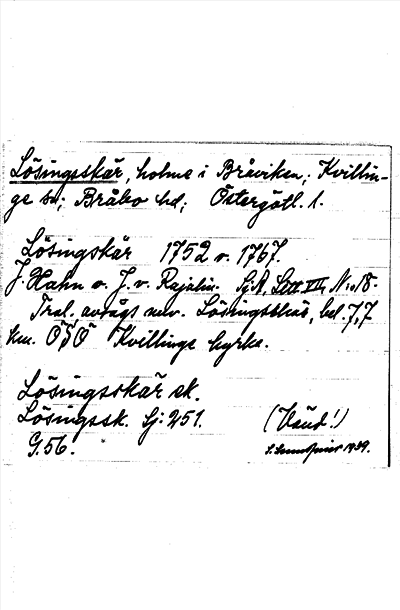 Lösingsskär, holme i Bråviken; Kvillin-
ge sn; Bråbo hd; Östergötl. l.
Lösingskär 1752 v. 1767.
J. Hahn o. J. v. Rajalin. Sj.A, Sec VII, N:o 18.
Trol. avsägs nuv. Lösingsskär, bel. 7,7
km. OSO Kvillinge kyrka.
Lösingsskär ek.
Lösingssk. Sj: 251. (Vänd!)
G. 56. 1939.